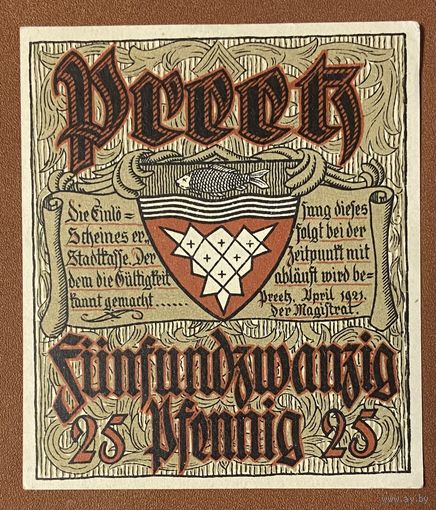 Preetz
Die Einlö= sung dieses
Scheines er= folgt bei der
Stadtkasse. Der Zeitpunkt mit
dem die Gültigkeit abläuft wird be=
kannt gemacht..... Preetz, April 1921.
Der Magistrat.
Fünfundzwanzig
25 Pfennig 25
www.ay.by